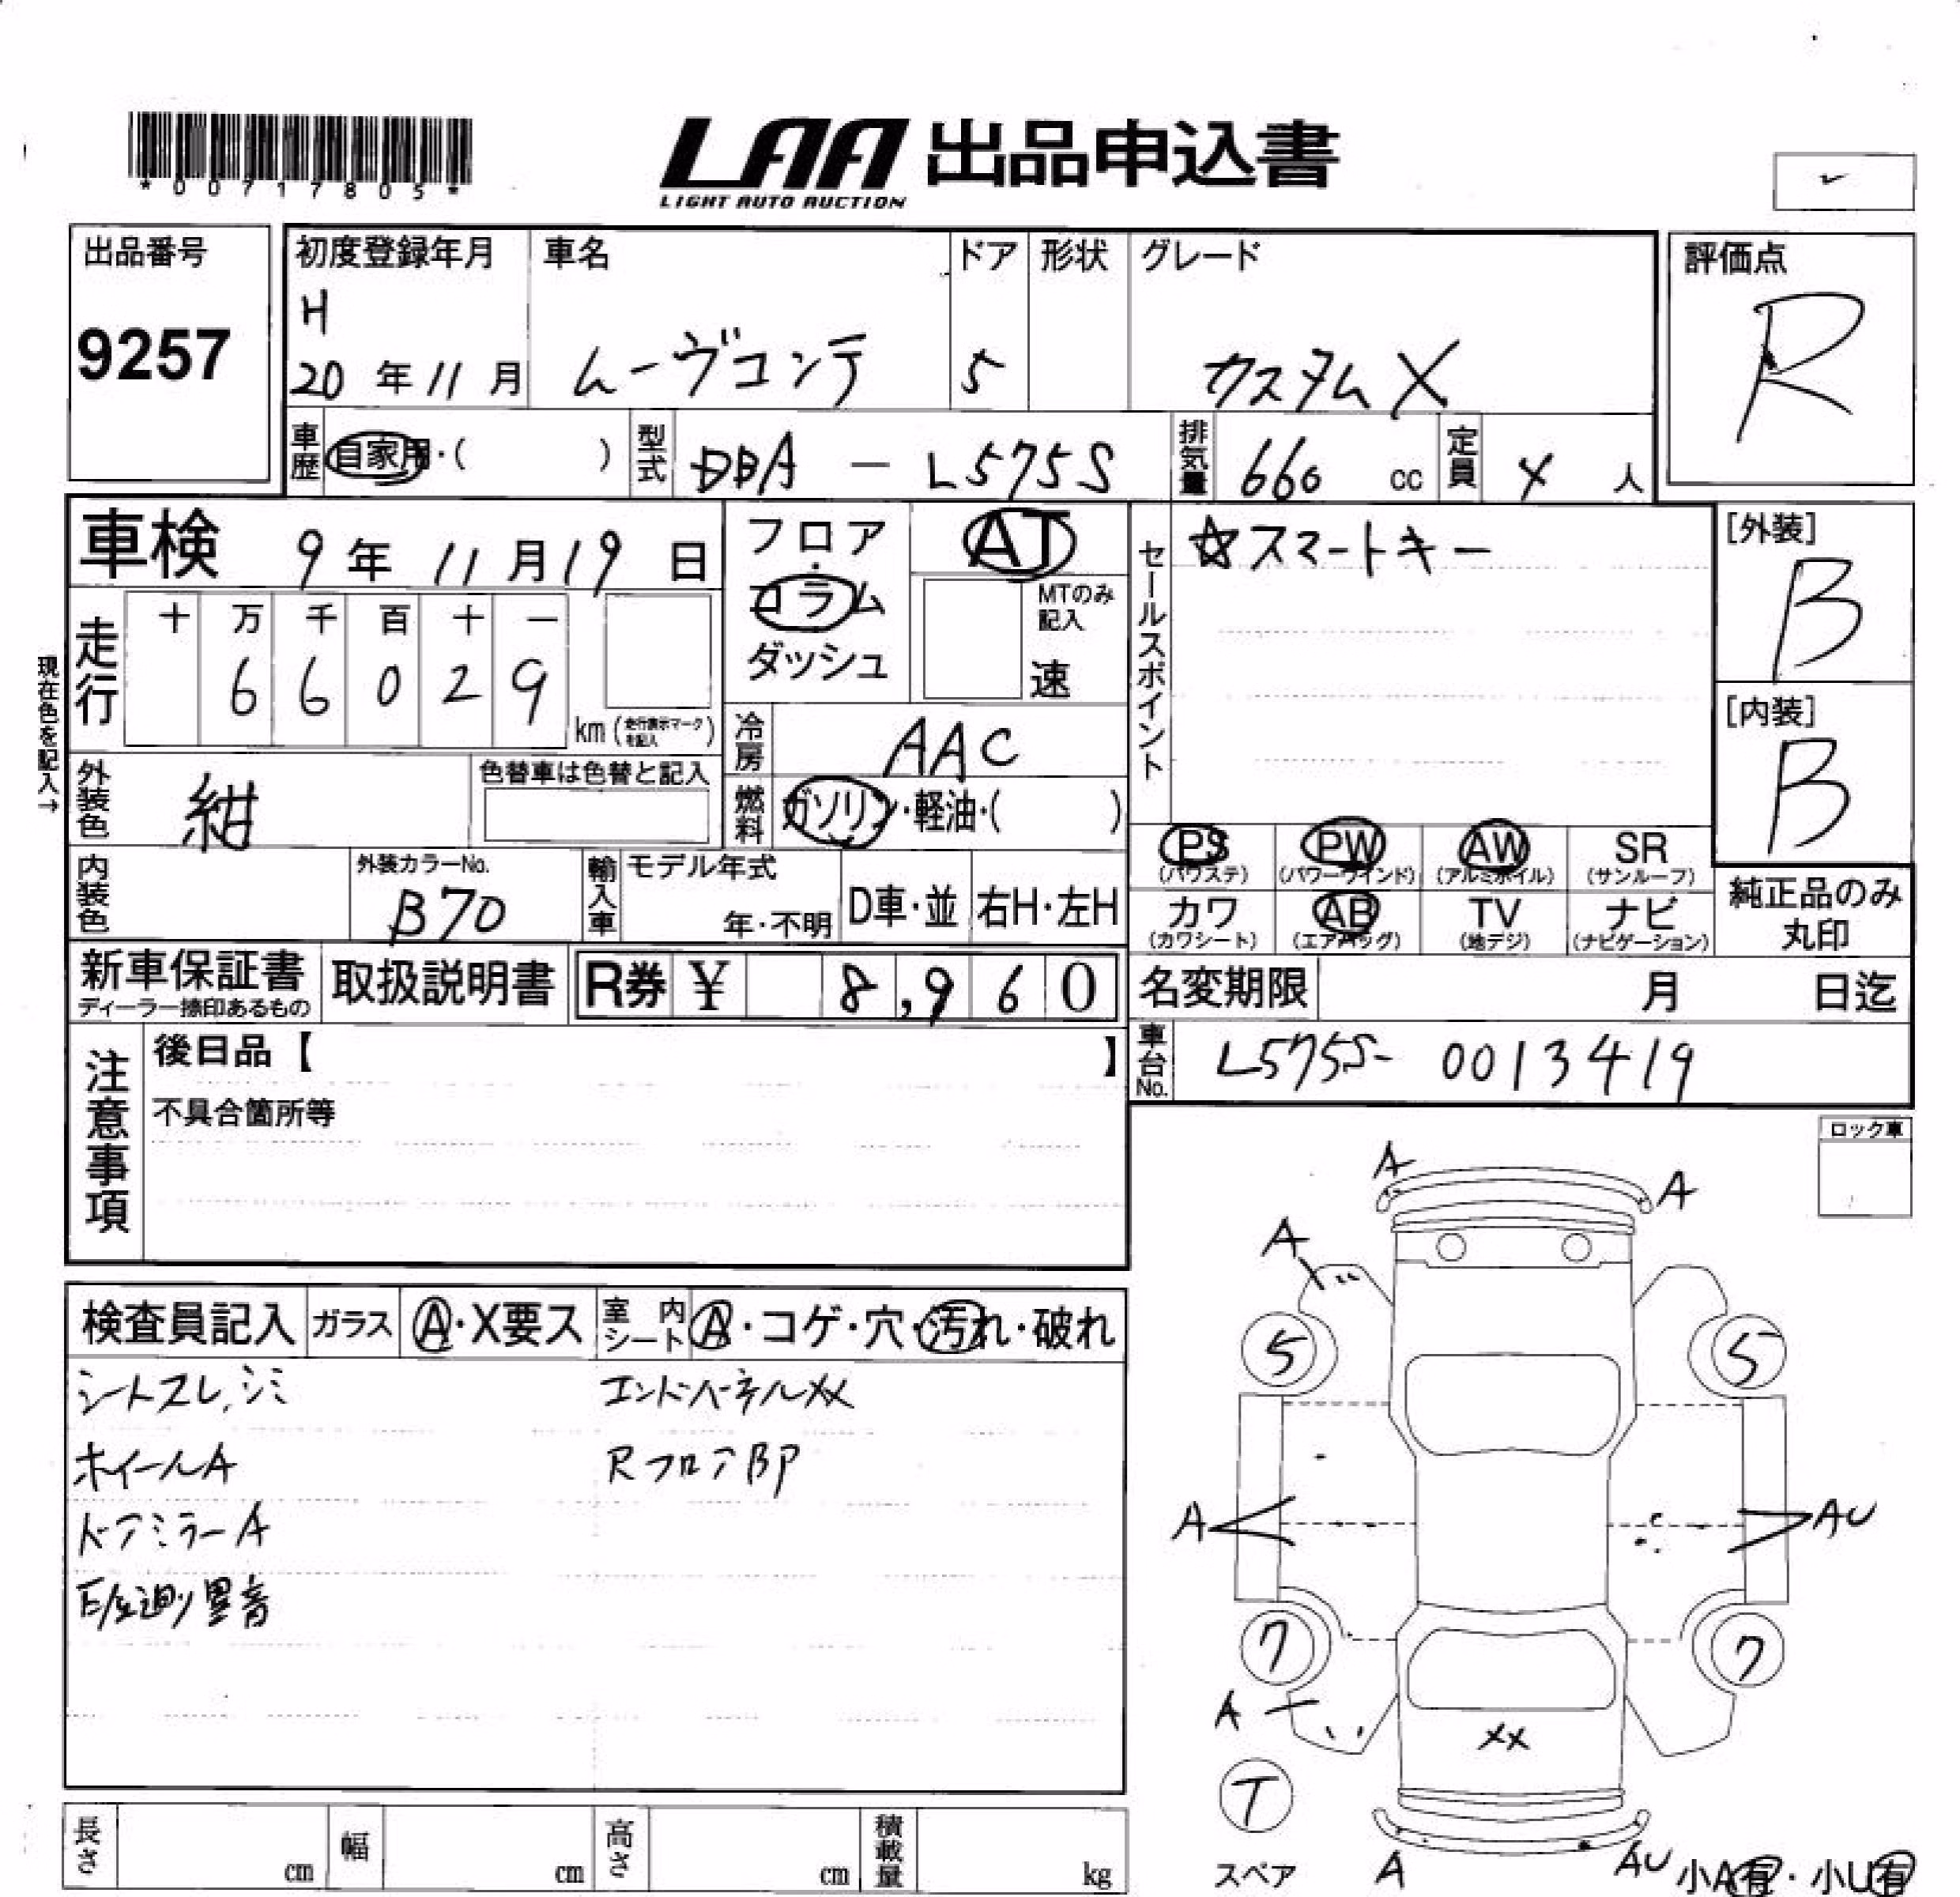 *00717805*
LAA 出品申込書
LIGHT AUTO AUCTION
出品番号
9257
初度登録年月
H
20 年 11 月
車名
ムーヴコンテ
ドア
5
形状
グレード
カスタムX
評価点
R
車歴 自家用・( )
型式 DBA - L575S
排気量 660 cc
定員 4 人
車検 9 年 11 月 19 日
フロア・コラム
ダッシュ
AT
MTのみ
記入
速
セールスポイント
☆スマートキー
[外装]
B
[内装]
B
現在色を記入→
走行
十 万 千 百 十 一
6 6 0 2 9
km (走行表示マークを記入)
冷房 AAC
外装色 紺
色替車は色替と記入
燃料 ガソリン・軽油・( )
PS (パワステ)
PW (パワーウインド)
AW (アルミホイル)
SR (サンルーフ)
カワ (カワシート)
AB (エアバッグ)
TV (地デジ)
ナビ (ナビゲーション)
純正品のみ
丸印
内装色
外装カラーNo.
B70
輸入車
モデル年式
年・不明
D車・並
右H・左H
新車保証書
ディーラー捺印あるもの
取扱説明書
R券 ¥ 8,960
名変期限 月 日迄
車台No. L575S- 0013419
注意事項
後日品【 】
不具合箇所等
ロック車
検査員記入
ガラス A・X要ス
室内シート A・コゲ・穴・汚れ・破れ
シートスレ、シミ
エンドパネルXX
ホイールA
RフロアBP
ドアミラーA
E/g廻り異音
A
A
A
5
5
A
AU
7
7
A
XX
T
スペア
A
AU
小A有・小U有
長さ cm
幅 cm
高さ cm
積載量 kg